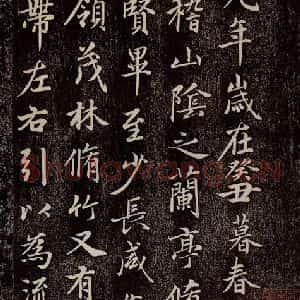 九年歲在癸丑暮春
稽山陰之蘭亭脩
賢畢至少長咸
領茂林脩竹又有
帶左右引以為流